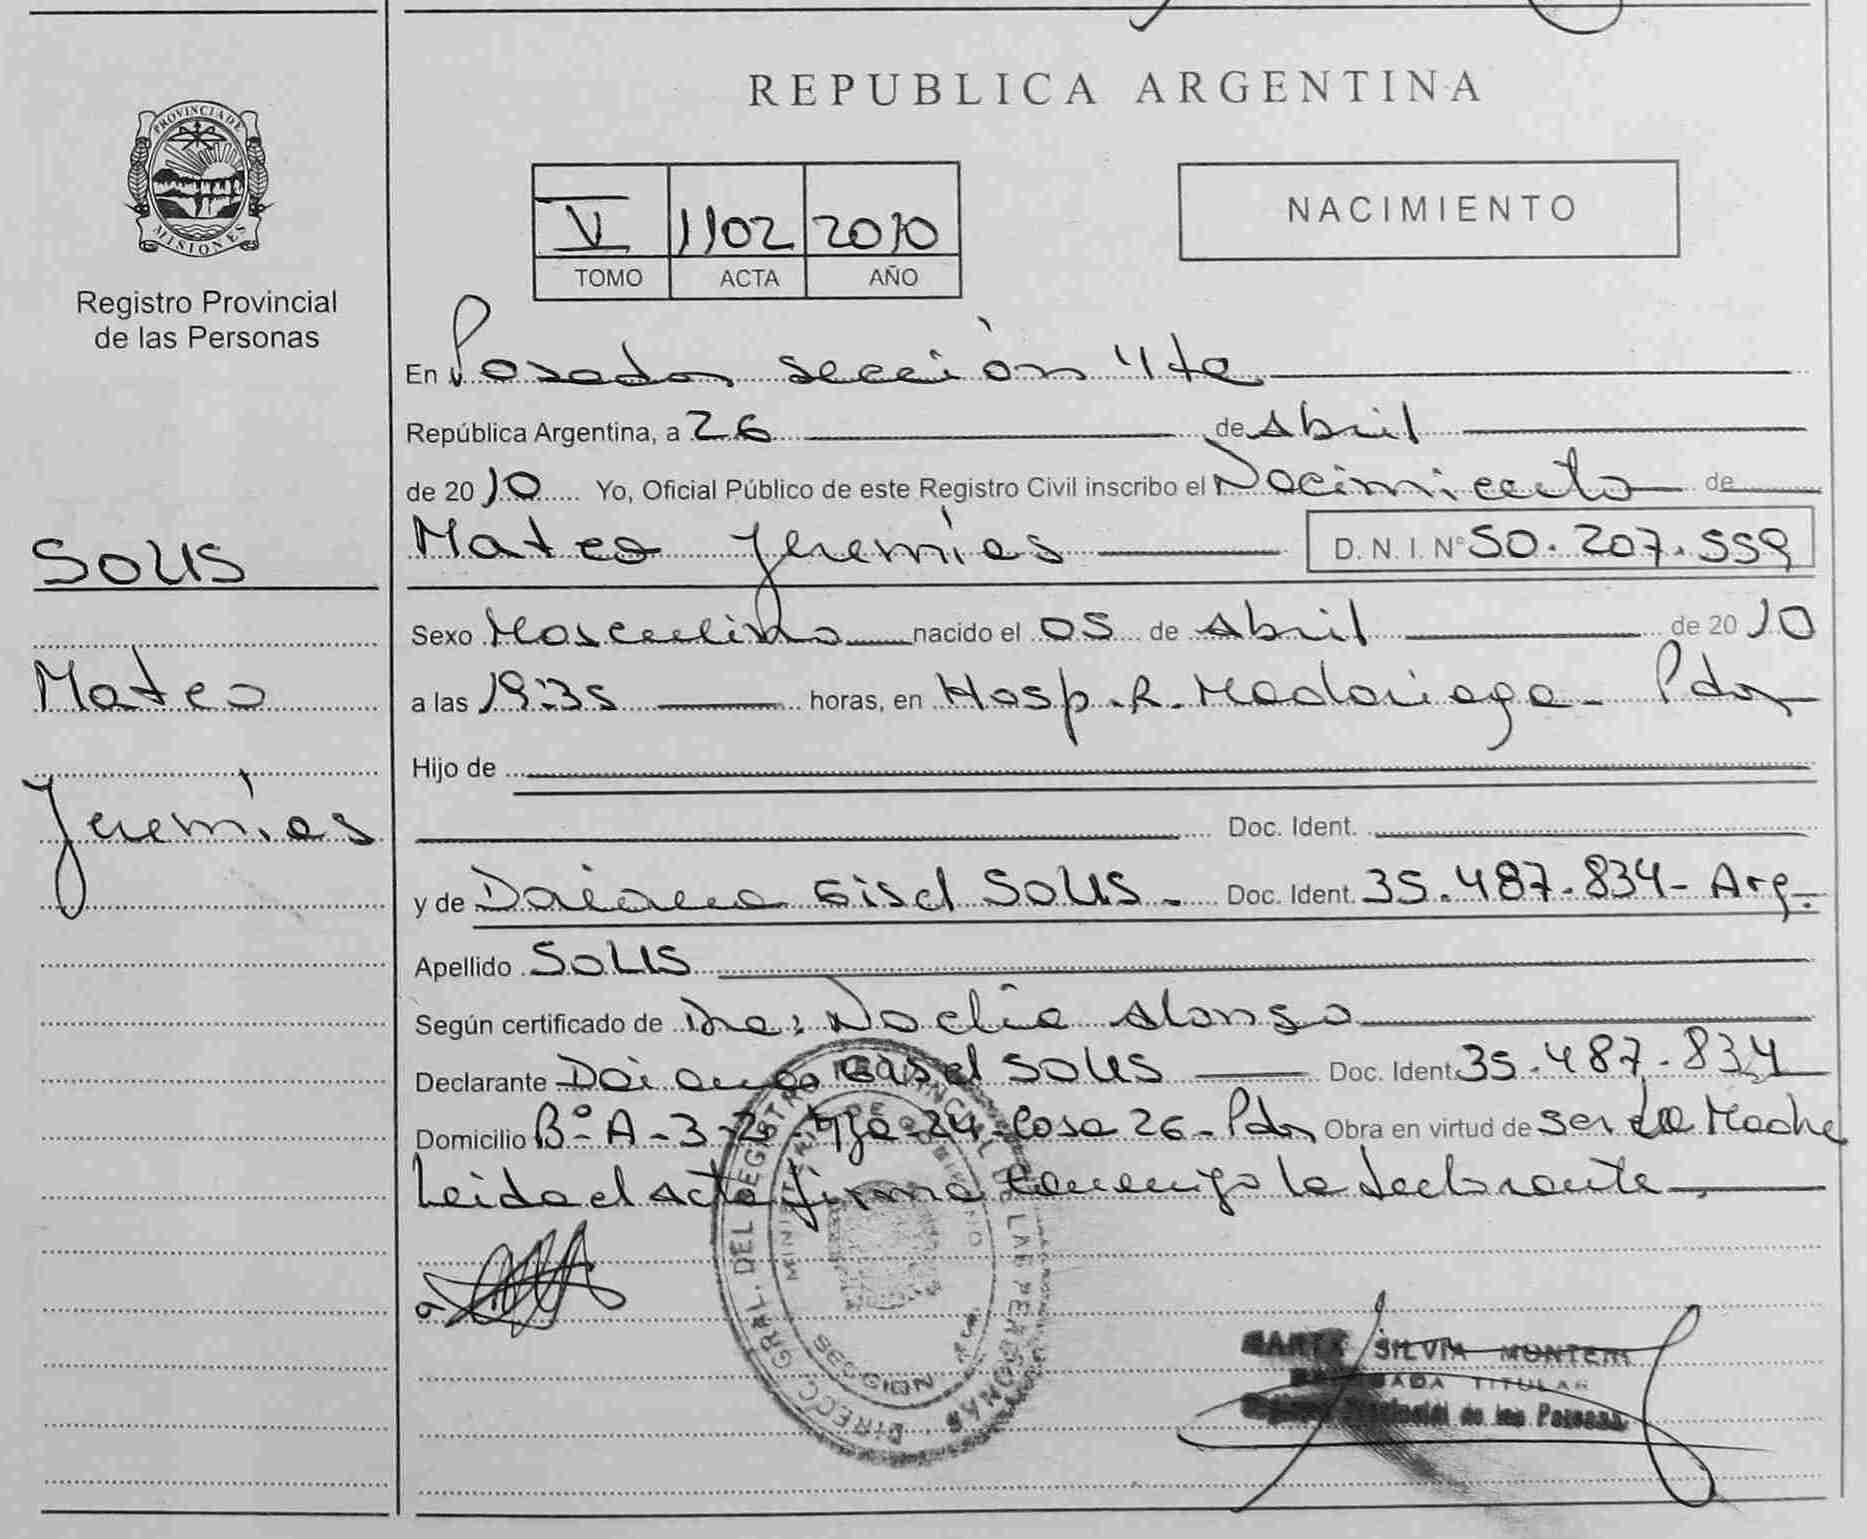 REPUBLICA ARGENTINA
PROVINCIA DE
MISIONES
Registro Provincial
de las Personas
V 1102 2010
TOMO ACTA AÑO
NACIMIENTO
En Posadas sección 4ta
República Argentina, a 26 de Abril
de 2010 Yo, Oficial Público de este Registro Civil inscribo el Nacimiento de
Mateo Jeremías D. N. I. Nº 50.207.559
SOLIS
Mateo
Jeremías
Sexo Masculino nacido el 05 de Abril de 2010
a las 19:35 horas, en Hosp. R. Madariaga - Pdas
Hijo de
Doc. Ident.
y de Daiana Gisel SOLIS. Doc. Ident. 35.487.834- Arg.
Apellido SOLIS
Según certificado de Dra: Noelia Alonso
Declarante Daiana Gisel SOLIS Doc. Ident 35.487.834
Domicilio Bº A-3-2- Mza-24-Casa 26- Pdas Obra en virtud de ser la Madre
Leida el acta firma conmigo la declarante
DIRECC. GRAL. DEL REGISTRO PROVINCIAL DE LAS PERSONAS
MINISTERIO DE GOBIERNO
MISIONES
SILVIA
TITULAR
Provincial de las Personas